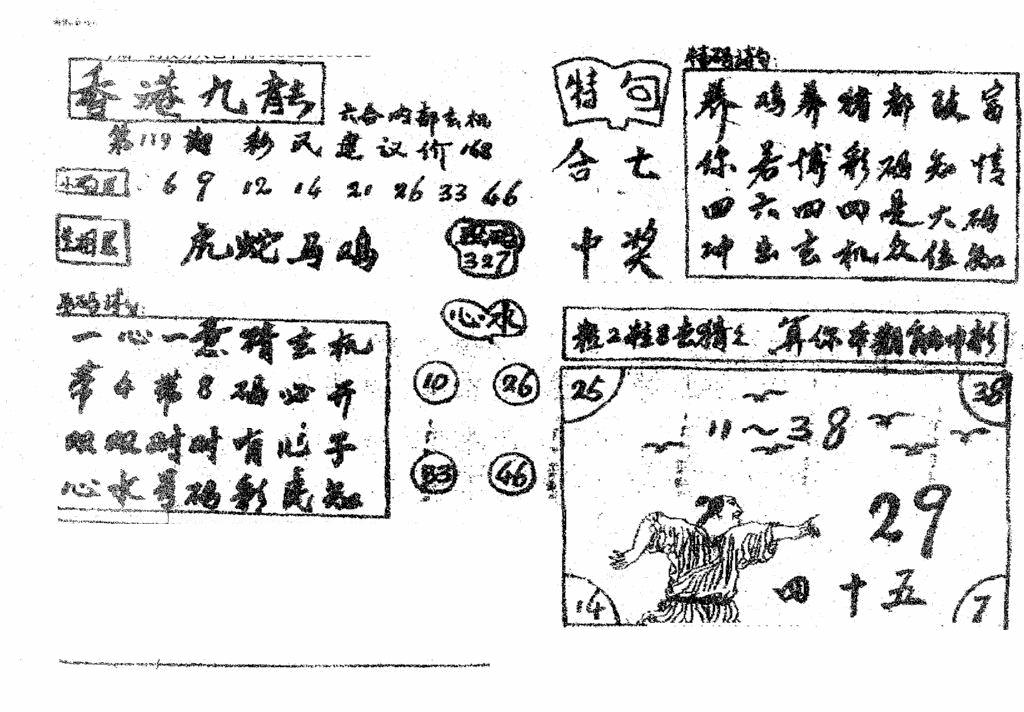 香港九龍
六合内部玄机
第119期 彩民建议价168
6 9 12 14 21 26 33 46
生肖区
虎蛇马鸡
327
一心一意猜玄机
带4带8码必开
双双对对有心子
心水号码彩民知
心水
10 26
33 46
特句
合七
中奖
特码诗句:
养鸡养猪都致富
你若博彩码知情
四六四四是大码
冲出玄机众位知
算你本期能中彩
25 38
11~38
29
四十五
14 7